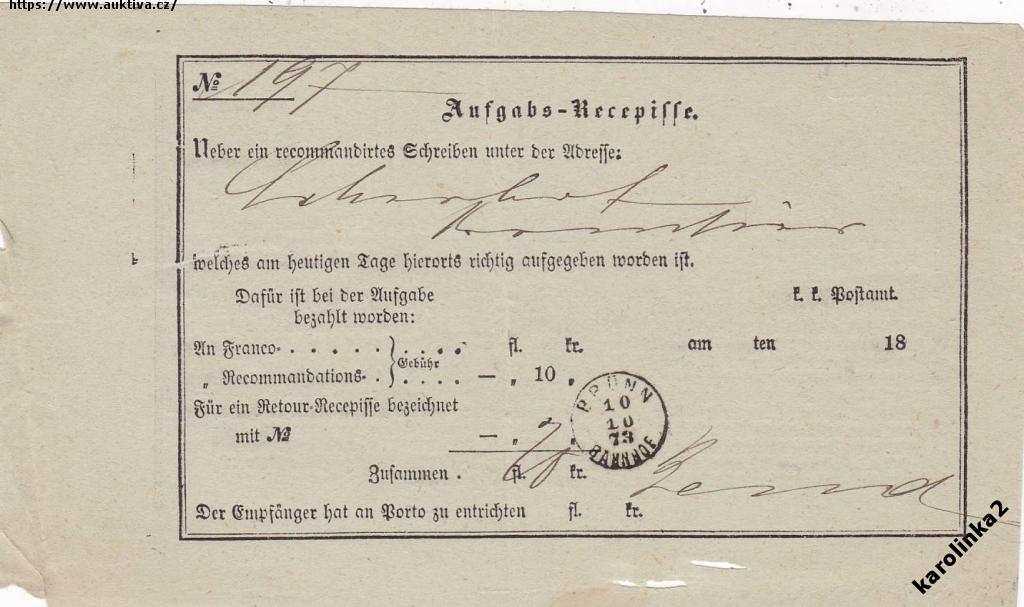 https://www.auktiva.cz/
№ 197
Aufgabs-Recepisse.
Ueber ein recommandirtes Schreiben unter der Adresse:
welches am heutigen Tage hierorts richtig aufgegeben worden ist.
Dafür ist bei der Aufgabe
bezahlt worden:
k. k. Postamt.
An Franco- . . . . . } . . . . fl. kr. am ten 18
Gebühr
„ Recommandations- . } . . . . — „ 10 „
Für ein Retour-Recepisse bezeichnet
mit № — „ „
Zusammen . fl. kr.
Der Empfänger hat an Porto zu entrichten fl. kr.
BRÜNN
10
10
73
BAHNHOF
karolinka2